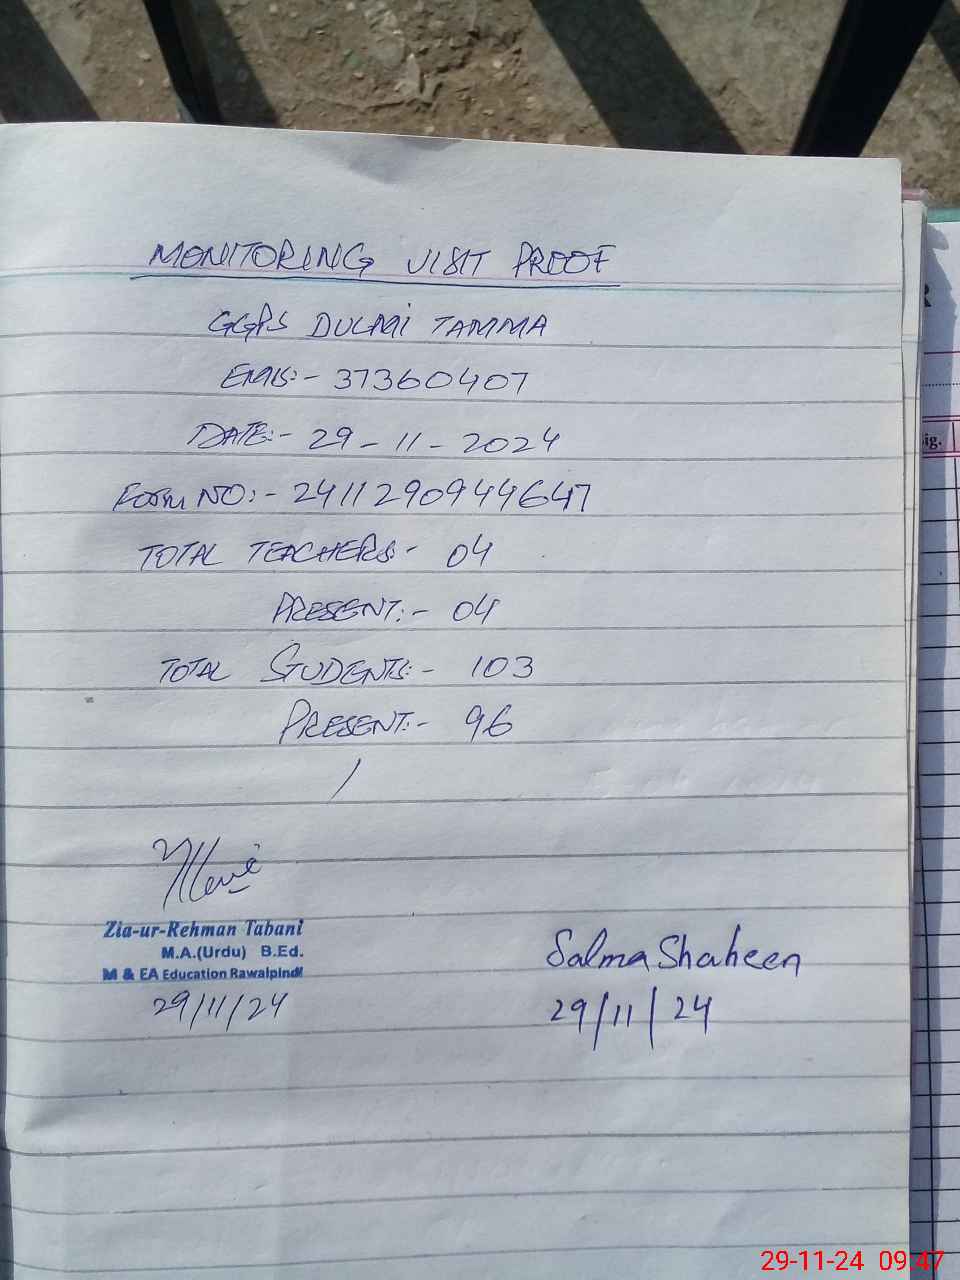 MONITORING VISIT PROOF
GGPS DULMI TAMMA
EMIS:- 37360407
DATE:- 29-11-2024
FORM NO:- 24112909449647
TOTAL TEACHERS:- 04
PRESENT:- 04
TOTAL STUDENTS:- 103
PRESENT:- 96
Zia-ur-Rehman Tabani
M.A.(Urdu) B.Ed.
M & EA Education Rawalpindi
29/11/24
Salma Shaheen
29/11/24
ig.
29-11-24 09:47